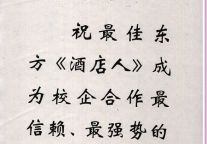 祝最佳东
方《酒店人》成
为校企合作最
信赖、最强势的